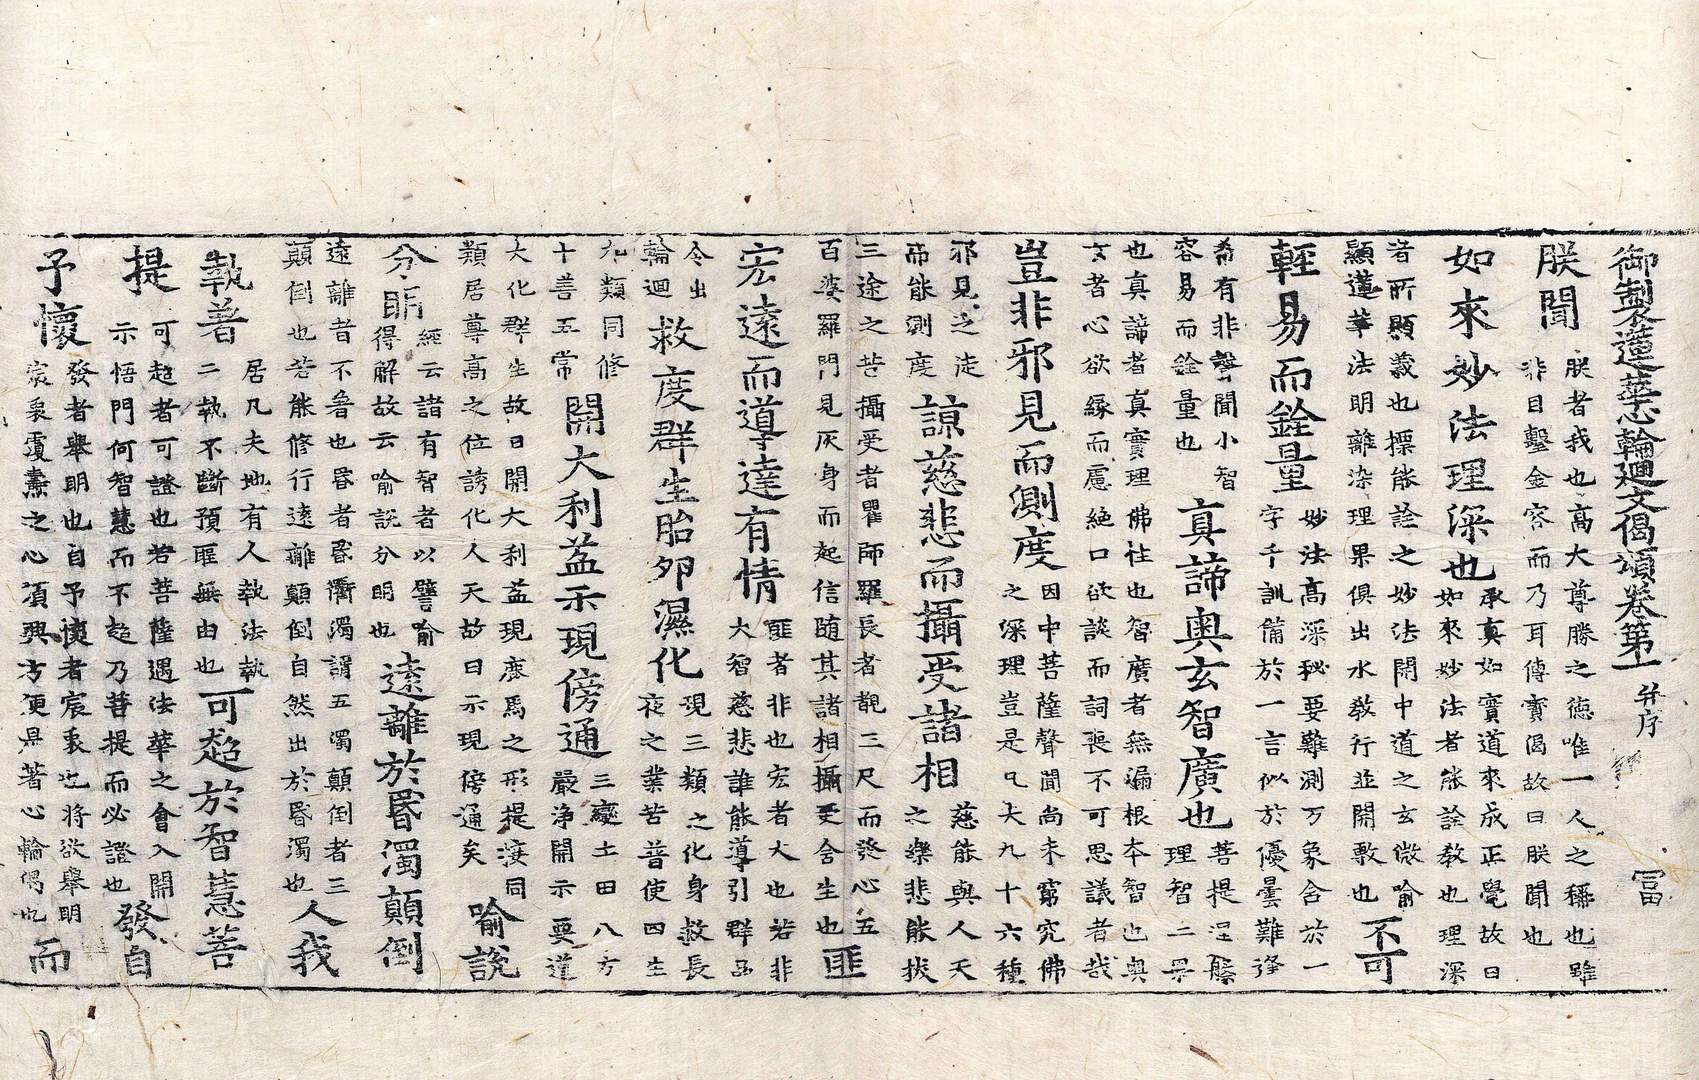 御製蓮華心輪廻文偈頌卷第一 并序 冨
朕聞
朕者我也高大尊勝之德唯一人之稱也雖
非目覩金容而乃耳傳實偈故曰朕聞也
如來妙法理深也
承真如實道來成正覺故曰
如來妙法者能詮教也理深
者所顯義也標能詮之妙法開中道之玄微喻
顯蓮華法明離染理果俱出水敎行並開敷也
不可
輕易而銓量
妙法高深秘要難測万象含於一
字千訓備於一言似於優曇難逢
希有非聲聞小智
容易而銓量也
真諦奧玄智廣也
菩提涅槃
理智二果
也真諦者真實理佛性也智廣者無漏根本智也奥
玄者心欲緣而慮絶口欲談而詞喪不可思議者哉
豈非邪見而測度
因中菩薩聲聞尚未窮究佛
之深理豈是凡大九十六種
邪見之徒
而能測度
諒慈悲而攝受諸相
慈能與人天
之樂悲能拔
三途之苦攝受者瞿師羅長者覩三尺而發心五
百婆羅門見灰身而起信随其諸相攝受含生也
匪
宏遠而導達有情
匪者非也宏者大也若非
大智慈悲誰能導引群品
令出
輪迴
救度群生胎夘濕化
現三類之化身救長
夜之業苦普使四生
九類同修
十善五常
開大利益示現傍通
三變土田八方
嚴淨開示要道
大化群生故曰開大利益現鹿馬之形提淒同
類居尊高之位誘化人天故曰示現傍通矣
喻說
分明
經云諸有智者以譬喻
得解故云喻說分明也
遠離於昬濁顛倒
遠離者不著也昬者昬衢濁謂五濁顛倒者三
顛倒也若能修行遠離顛倒自然出於昬濁也
人我
執著
居凡夫地有人執法執
二執不斷預匪無由也
可趂於智慧菩
提
可趂者可證也若菩薩遇法華之會入開
示悟門何智慧而不趂乃菩提而必證也
發自
予懷
發者舉明也自予懷者宸衷也將欲舉明
宸衷覆燾之心須興方便是著心輪偈也
而